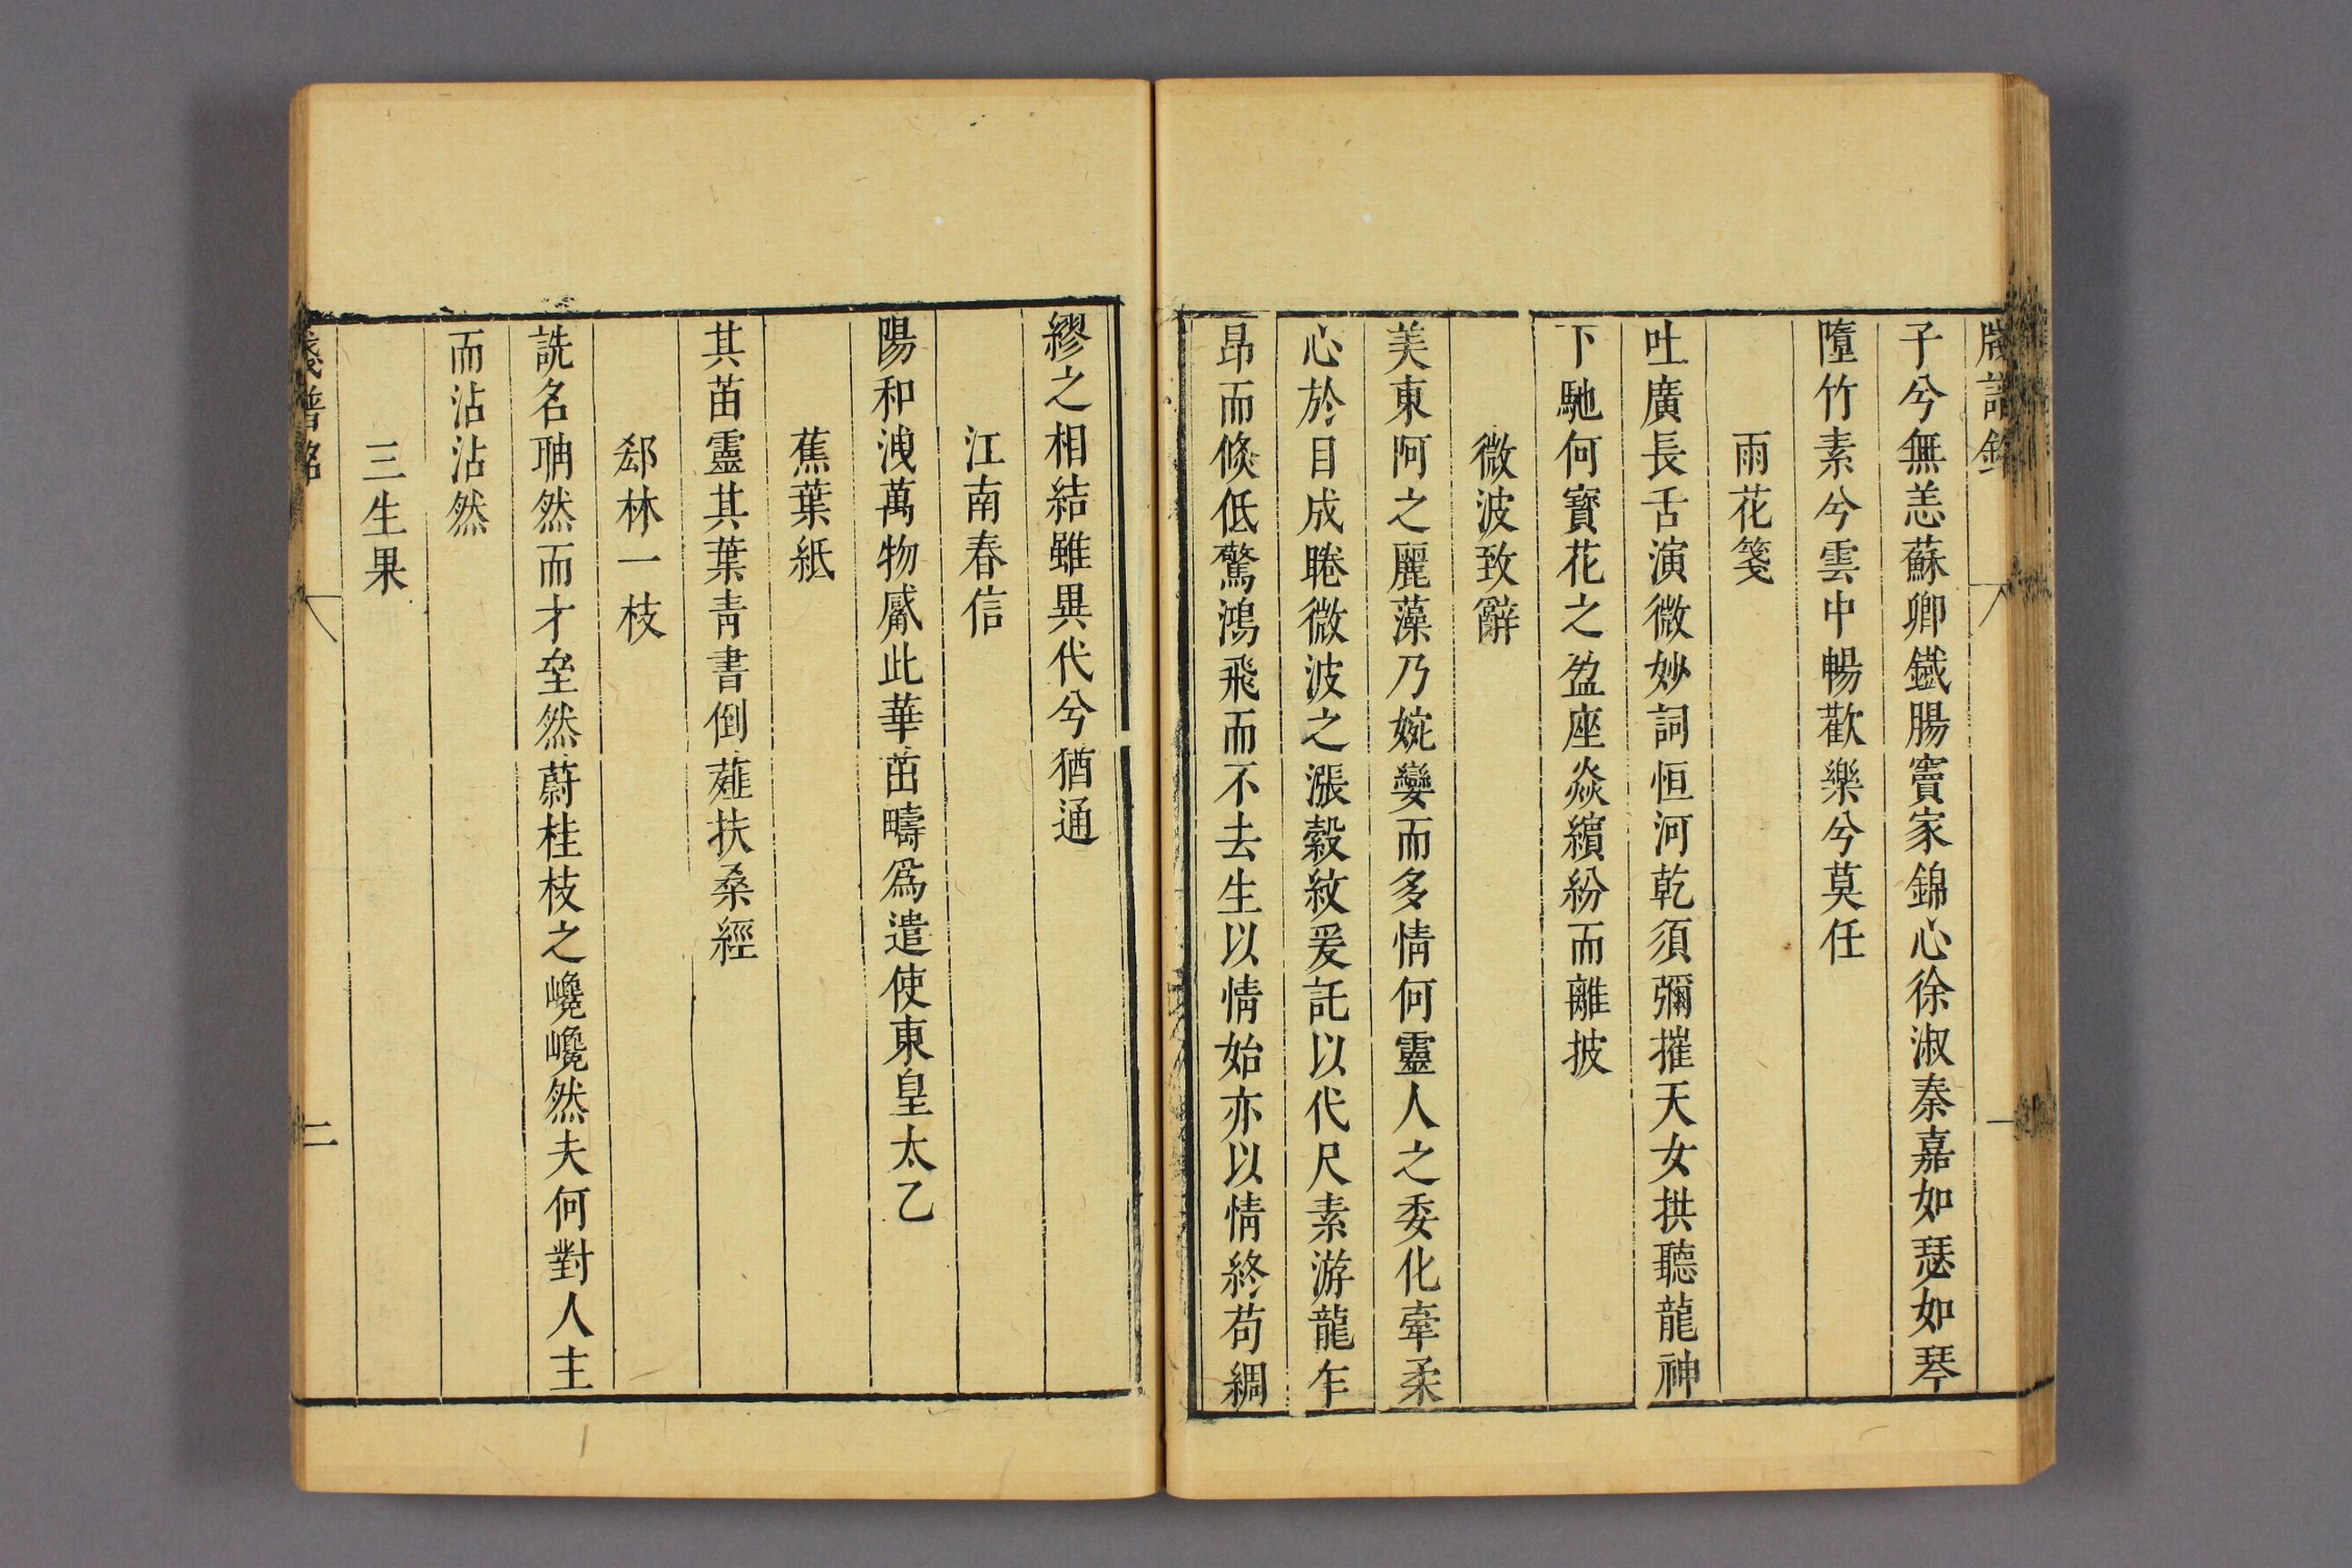 子兮無恙蘇卿鐵腸竇家錦心徐淑秦嘉如瑟如琴
墮竹素兮雲中暢歡樂兮莫任
雨花箋
吐廣長舌演微妙詞恒河乾須彌摧天女拱聽龍神
下馳何寶花之盈座焱繽紛而離披
微波致辭
美東阿之麗藻乃婉孌而多情何靈人之委化牽柔
心於目成睠微波之漲縠紋爰託以代尺素游龍乍
昂而倏低驚鴻飛而不去生以情始亦以情終苟綢
繆之相結雖異代兮猶通
江南春信
陽和洩萬物膚此華苗疇爲遣使東皇太乙
蕉葉紙
其苗靈其葉青書倒薤扶桑經
郄林一枝
詵名聃然而才垒然蔚桂枝之巉巉然夫何對人主
而沾沾然
三生果
箋譜銘
二